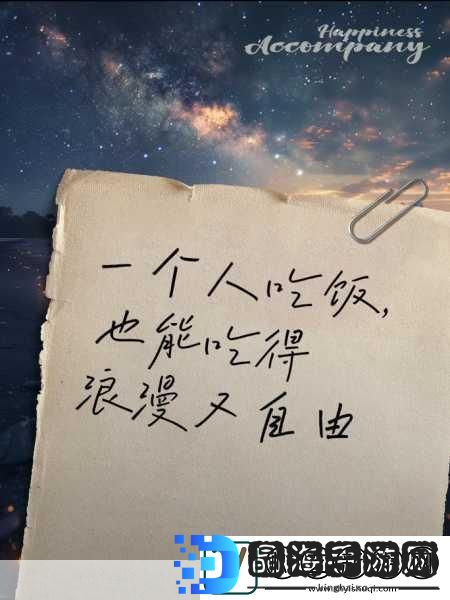 Happiness
Accompany
一个人吃饭,
也能吃得
浪漫又自由